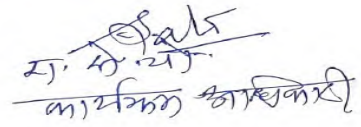 रा. से. यो.
कार्यक्रम अधिकारी